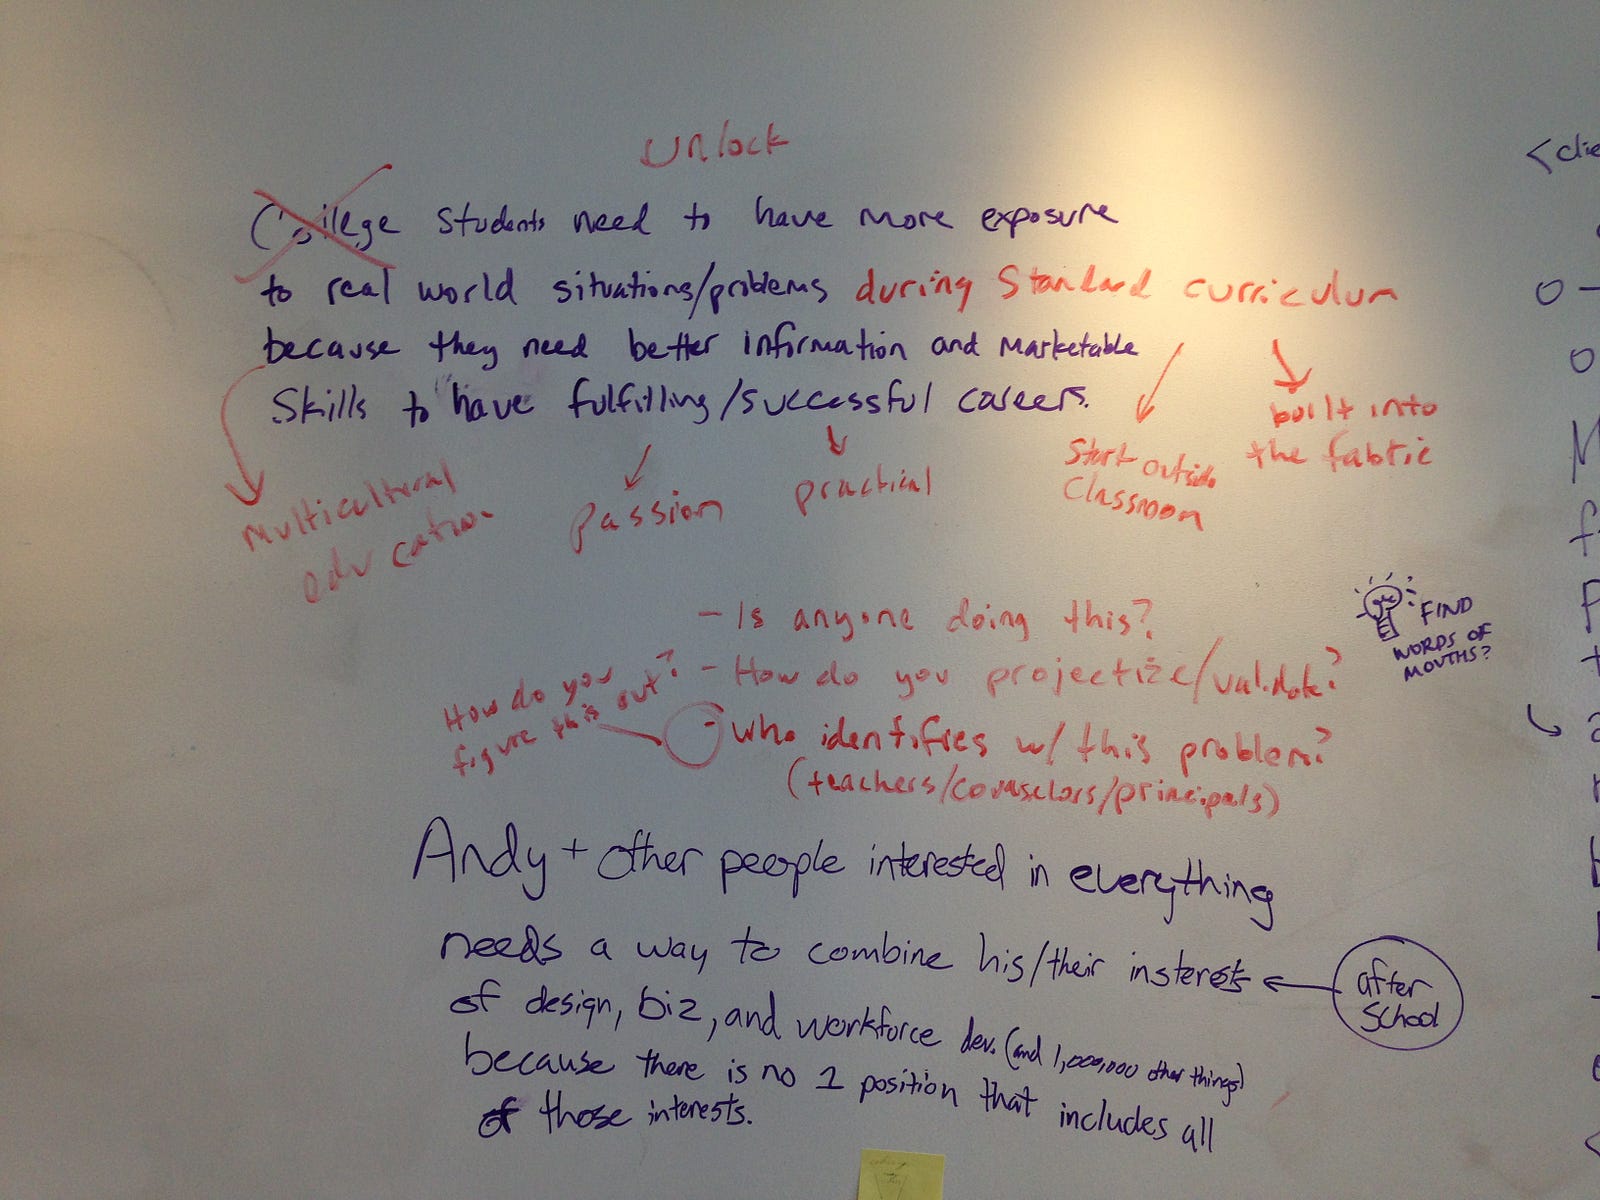 unlock
College students need to have more exposure
to real world situations/problems during standard curriculum
because they need better information and marketable
skills to have fulfilling/successful careers.
multicultural
education
passion
practical
Start outside
Classroom
built into
the fabric
- Is anyone doing this?
- How do you projectize/validate?
- who identifies w/ this problem?
(teachers/counselors/principals)
How do you
figure this out?
FIND
WORDS OF
MOUTHS?
Andy + other people interested in everything
needs a way to combine his/their insterests
of design, biz, and workforce dev. (and 1,000,000 other things)
because there is no 1 position that includes all
of those interests.
after
School